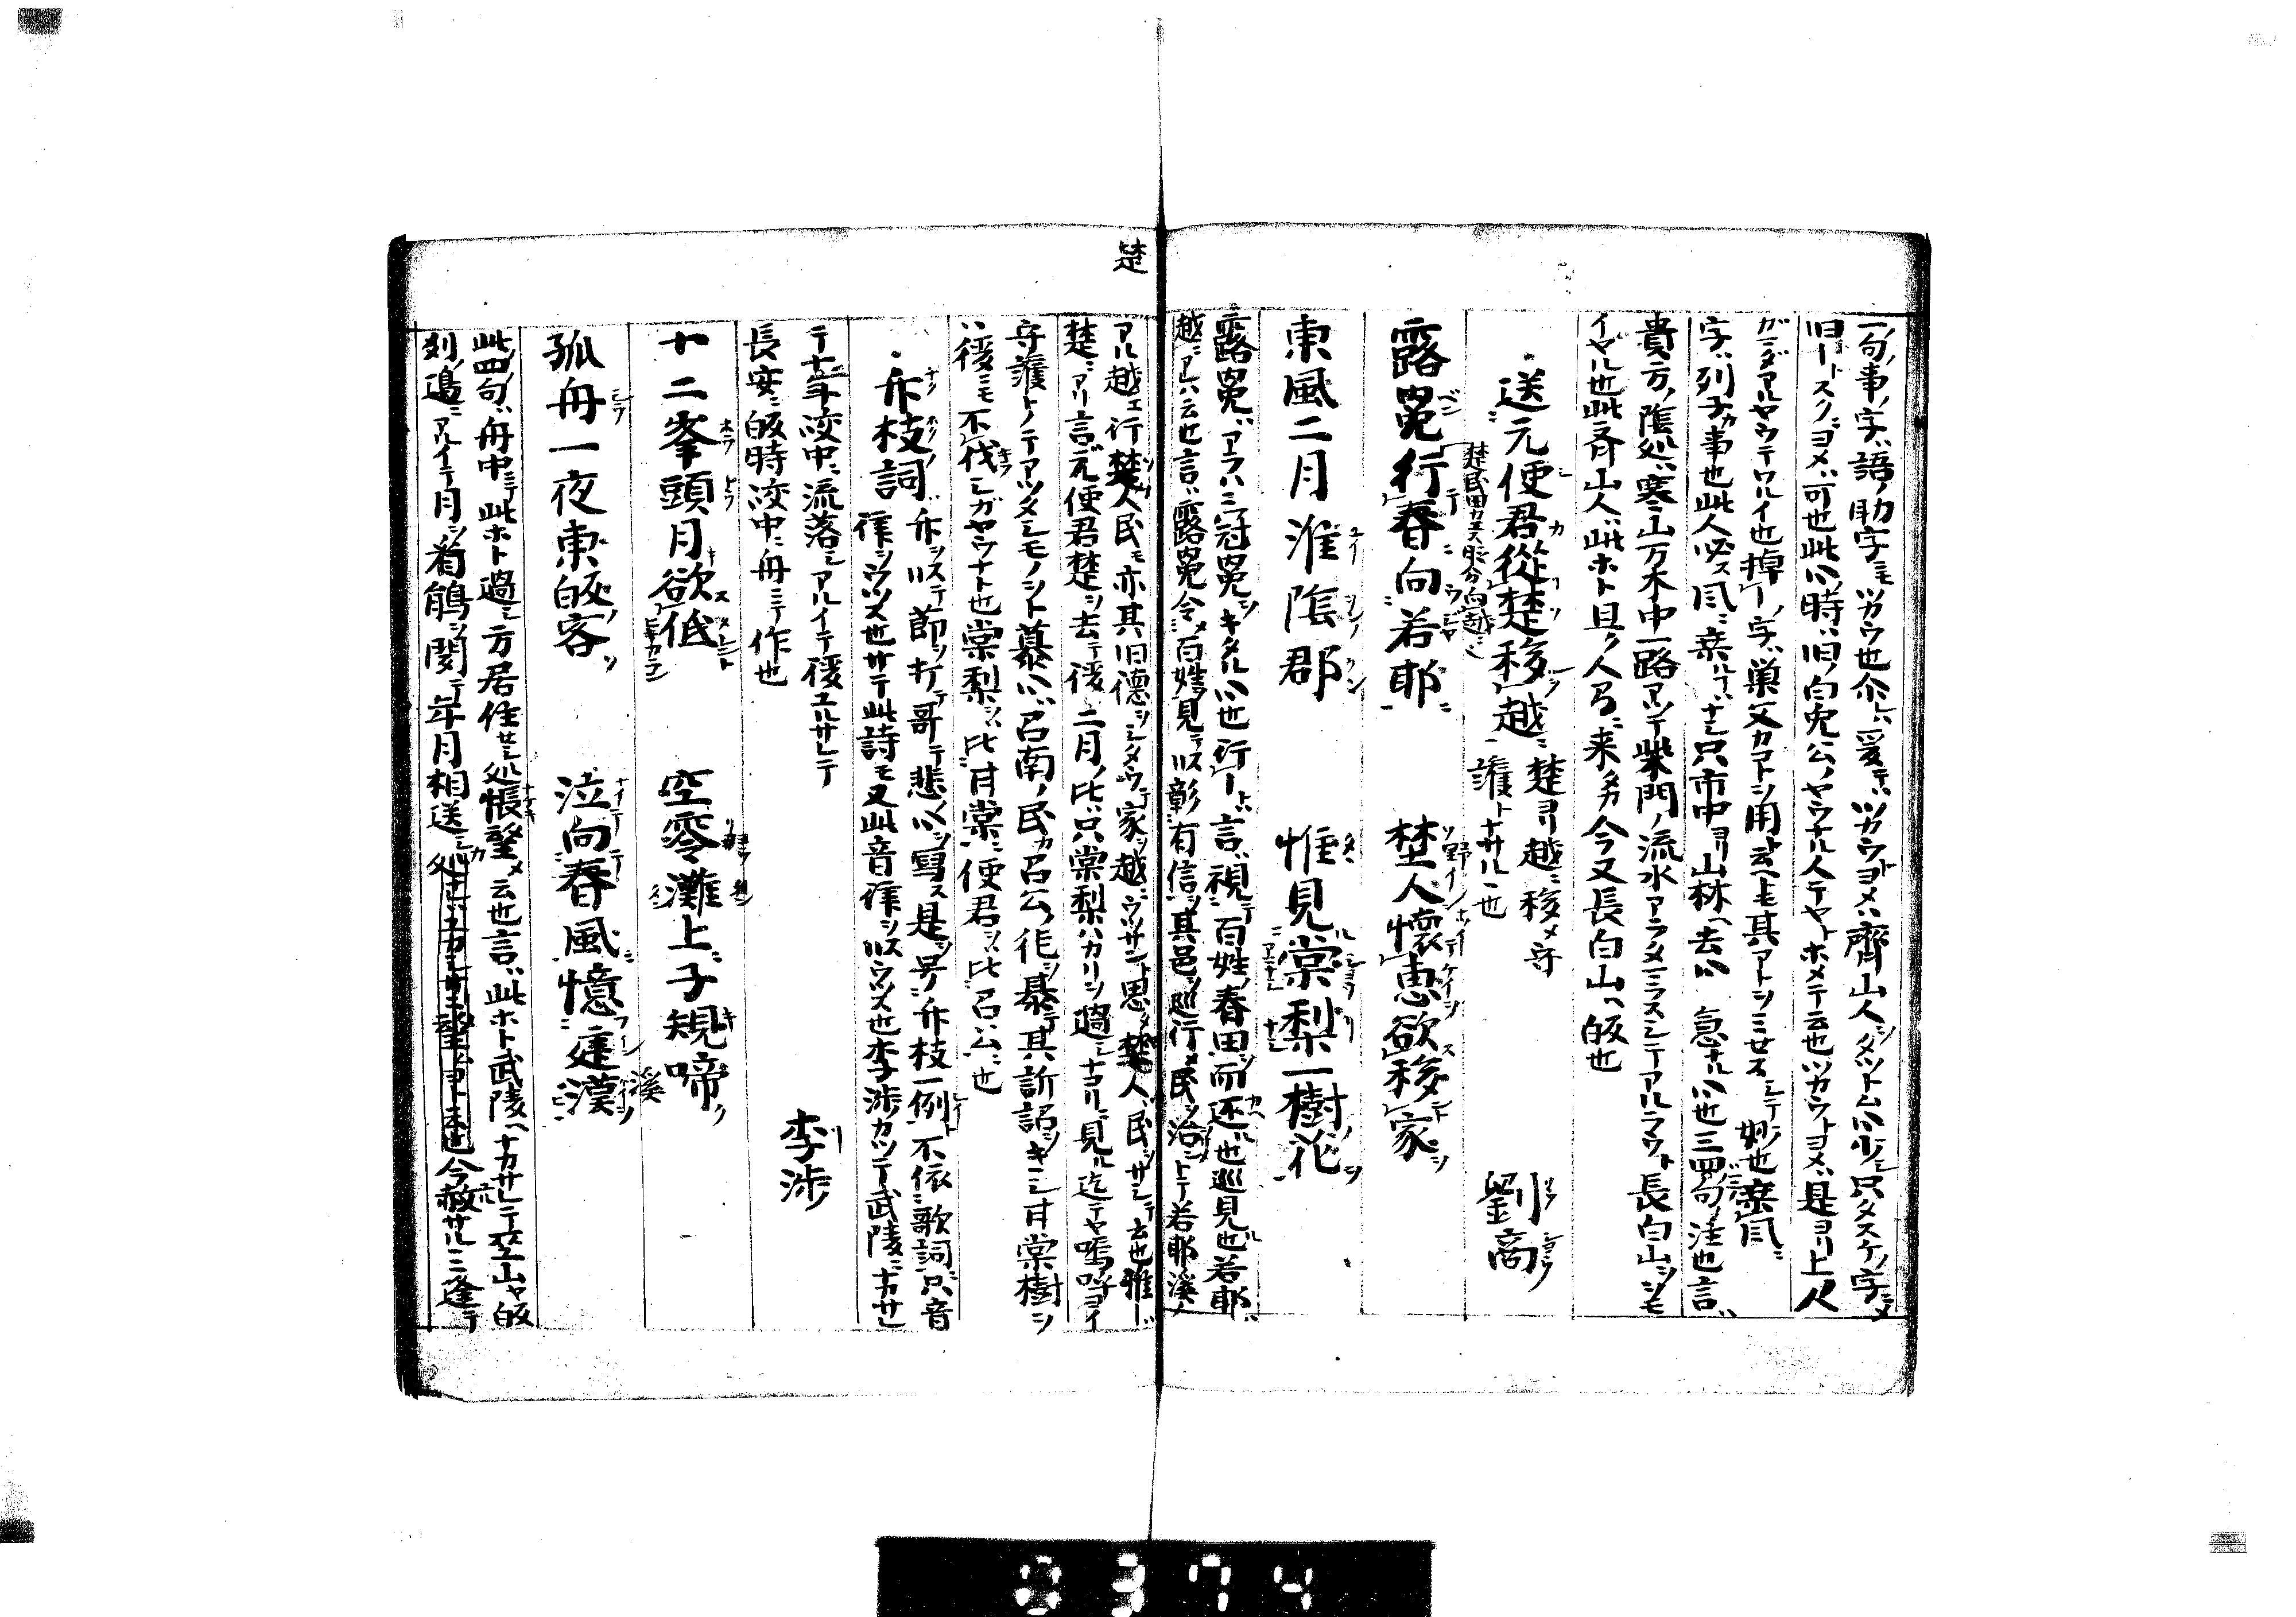 一句ノ事ノ字ハ語ノ助字ニモツカウ也尒レハ爰テハツカウトヨメハ齊山人ヲタツトム心少シ只タスケノ字ニメ
旧ートスクニヨメハ可也此心ノ時ハ旧ノ白兎公ノヤウナル人テヤトホメテ云也ツカウトヨメハ是ヨリ上人
ガマダアルヤウテワルイ也掉ーノ字ハ巣父カコトヲ用云ヘトモ其アトヲミセスシテ妙也乗風ニ
字ハ列子カ事也此人必ス風ニ乗ルコトハナシ只市中ヨリ山林ヘ去心急ナル心也三四句ノ注也言ハ
貴方ノ隠処ハ寒山万木中一路アツテ柴門ノ流水アラタメラスシテアルラウト長白山ヲシモ
イヤル也此斉山人ハ此ホト且ク人間ニ来タカ今又長白山ヘ皈也
送元使君從楚移越 楚ヨリ越ニ移メ守
護トナサルヽ也
劉商
露冕行春向若耶 埜人懐恵欲移家
東風二月淮陰郡 惟見棠梨一樹花
露冕ハアラハニ冠冕ヲキタル心也行ートハ言ハ視テ百姓ノ春田ヲ而还ル也巡見也若耶ハ
越ニアレハ云也言ハ露冕令メ百姓見テ以彰有信ヲ其邑ヲ巡行メ民ヲ治ントテ若耶溪ノ
楚
アル越エ行楚人民モ亦其旧德ヲシタウテ家ヲ越ニウツサント思タ楚人ノ民ヲサシテ云也淮ーハ
楚ニアリ言ハ元使君楚ヲ去テ後二月ノ比ハ只棠梨ハカリヲ過シナコリニ見ル迄テヤ嗚呼ヨイ
守護トノテアツタシモノヲト慕心ハ召南ノ民カ召公ノ化ヲ慕テ其訴詔ヲキヽシ甘棠樹ヲ
後ニモ不伐シガヤウナト也棠梨ヲハ比甘棠ニ使君ヲハ比召公ニ也
竹枝詞 竹ヲステ以節ヲ打テ哥テ悲心ヲ写ス是ヲ号ク竹枝一例ト不依歌詞ニ只音
律ヲウツス也サテ此詩モ又此音律ヲ以ウツス也李涉カツテ武陵ニナカサレ
テ十年峽中ニ流落シアルイテ後ユルサレテ
長安ニ皈時峽中ニ舟ニテ作也
李涉
十二峯頭月欲低 空零灘上子規啼
孤舟一夜東皈客 泣向春風憶建溪
此四句ハ舟中ニテ此ホト過シ方居住セシ処悵望メ云也言ハ此ホト武陵ヘナカサレテ空山ヤ皈
刕ノ邉ニアルイテ月ヲ看鵑ヲ聞テ年月相送シ処 今赦サルヽニ逢テ